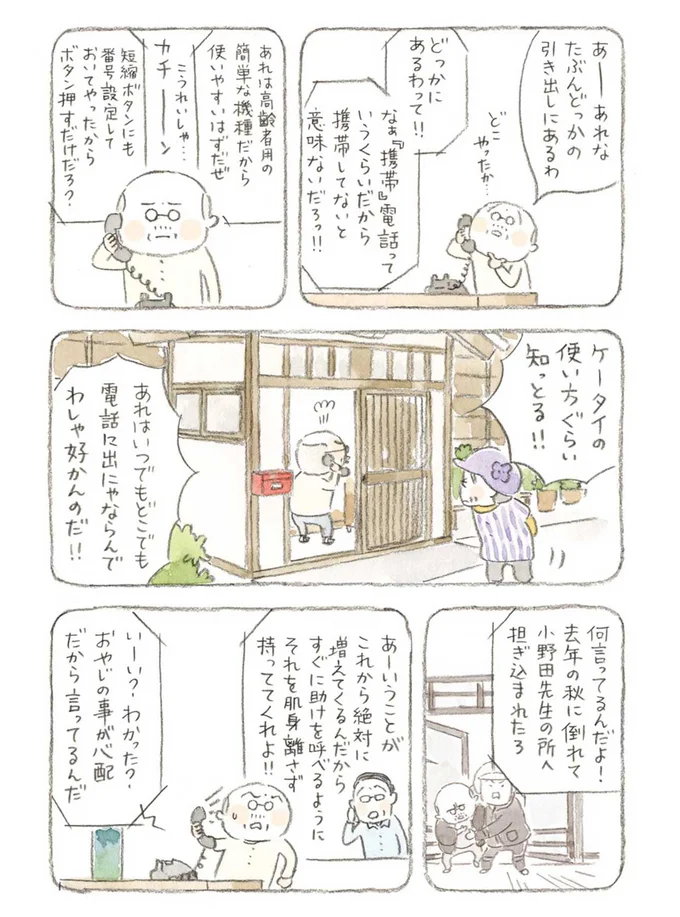 あーーあれな
たぶんどっかの
引き出しにあるわ
どこ
やったか…
どっかに
あるわって!!
なぁ『携帯』電話って
いうくらいだから
携帯してないと
意味ないだろっ!!
あれは高齢者用の
簡単な機種だから
使いやすいはずだぜ
こうれいしゃ…
カチーーーン
短縮ボタンにも
番号設定して
おいてやったから
ボタン押すだけだろ?
ケータイの
使い方ぐらい
知っとる!!
あれはいつでもどこでも
電話に出にゃならんで
わしゃ好かんのだ!!
何言ってるんだよ!
去年の秋に倒れて
小野田先生の所へ
担ぎ込まれたろ
あーいうことが
これから絶対に
増えてくるんだから
すぐに助けを呼べるように
それを肌身離さず
持っててくれよ!!
いーい?わかった?
おやじの事が心配
だから言ってるんだ